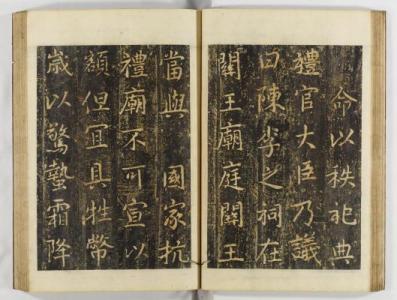 命以秩祀典
禮官大臣乃議
曰陳李之祠在
關王廟庭關王
當與 國家抗
禮廟不可宣以
額但冝具牲幣
歲以驚蟄霜降